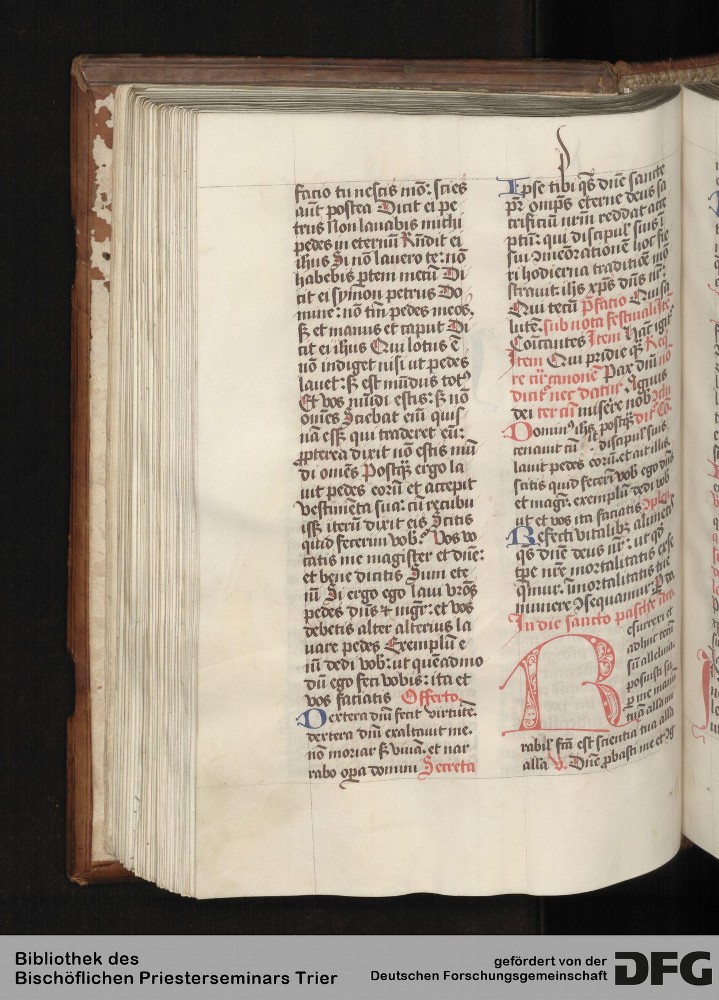 facio tu nescis mo͞: scies
aūt postea Dicit ei pe
trus Non lauabis michi
pedes in eternū Rn̄dit ei
ihus Si nō lauero te: nō
habebis ꝑtem mecū Di
cit ei symon petrus Do
mine: nō tm̄ pedes meos.
sꝫ et manus et caput Di
cit ei ihus Qui lotus ē
nō indiget nisi ut pedes
lauet: sꝫ est mūdus totꝰ
Et vos mūdi estis: sꝫ nō
om̄es Sciebat eīū quis
nā essꝫ qui traderet eū:
ꝓpterea dixit nō estis mū
di om̄es Postqꝫ ergo la
uit pedes eorū et accepit
vestimēta sua: cū recubu
issꝫ iterū dixit eis Scitis
quid fecerim vob: Vos vo
catis me magister et dn̄e:
et bene dicitis Sum ete
nī Si ergo ego laui vr̄os
pedes dn̄s ⁊ mgr̄: et vos
debetis alter alterius la
uare pedes Exemplū e
nī dedi vob: ut quēadmo
dū ego feci vobis: ita et
vos faciatis Offerto.
Dextera dn̄i fecit virtutē.
dextera dn̄i exaltauit me.
nō moriar sꝫ viuā. et nar
rabo oꝑa domini Secreta
Ipse tibi qs̄ dn̄e sancte
pr̄ omp̄s eterne deus sa
crificiū nr̄m reddat acce
ptū: qui discipul' suis ī
sui ꝯmeōrationem hoc fie
ri hodierna traditiōe mō
strauit: ihs xp̄s dn̄s nr̄:
Qui tecū p̄facio Qui sa
lutē. sub nota festiuali
Cōicantes Item Hāc igit'
Item Qui pridie qꝫ Req̄
re cir̄ canonē Pax dn̄i nō
dicit' nec datur Agnus
dei ter cū misere nob
Dominꝰ ihs postqꝫ dit Cō.
cenauit cū discipul' suis
lauit pedes eorū. et ait illis.
scitis quid fecerī vob ego dn̄s
et magr̄. exemplū dedi vob
ut et vos ita faciatis ꝯplen
Refecti vitalibꝫ alimētis
qs̄ dn̄e deus nr̄: ut qd̄
tꝑe nr̄e mortalitatis exse
q̄mur. īmortalitatis tue
munere ꝯsequamur: P
In die sancto pasche
Resurrexi et
adhuc tecū
sū alleluia.
posuisti su
ꝑ me manū
tuā alla mi
rabil' fcā est scientia tua alla
alla V. Dn̄e ꝓbasti me et ꝯg
Bibliothek des
Bischöflichen Priesterseminars Trier
gefördert von der
Deutschen Forschungsgemeinschaft
DFG